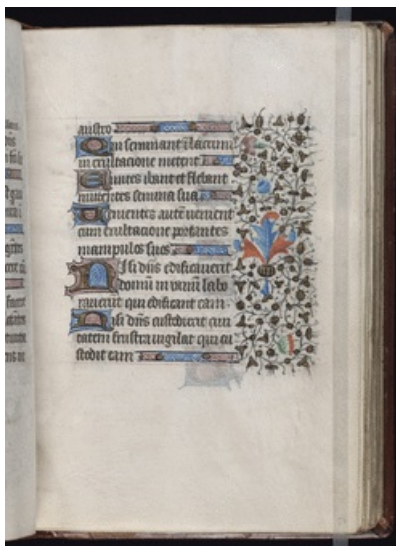 austro
Qui seminant i lacrimis
in exultacione metent
Euntes ibant et flebant
mittentes semina sua
Venientes aute venient
cum exultacione portantes
manipulos suos
Nisi dns edificaverit
domu in vanu labo
raverut qui edificant eam
Nisi dns custodierit civi
tatem frustra vigilat qui cu
stodit eam